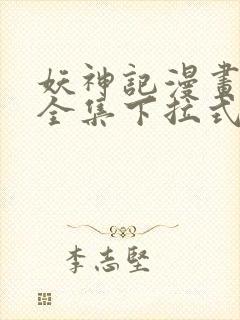 妖神記漫畫
全集下拉式
李志堅